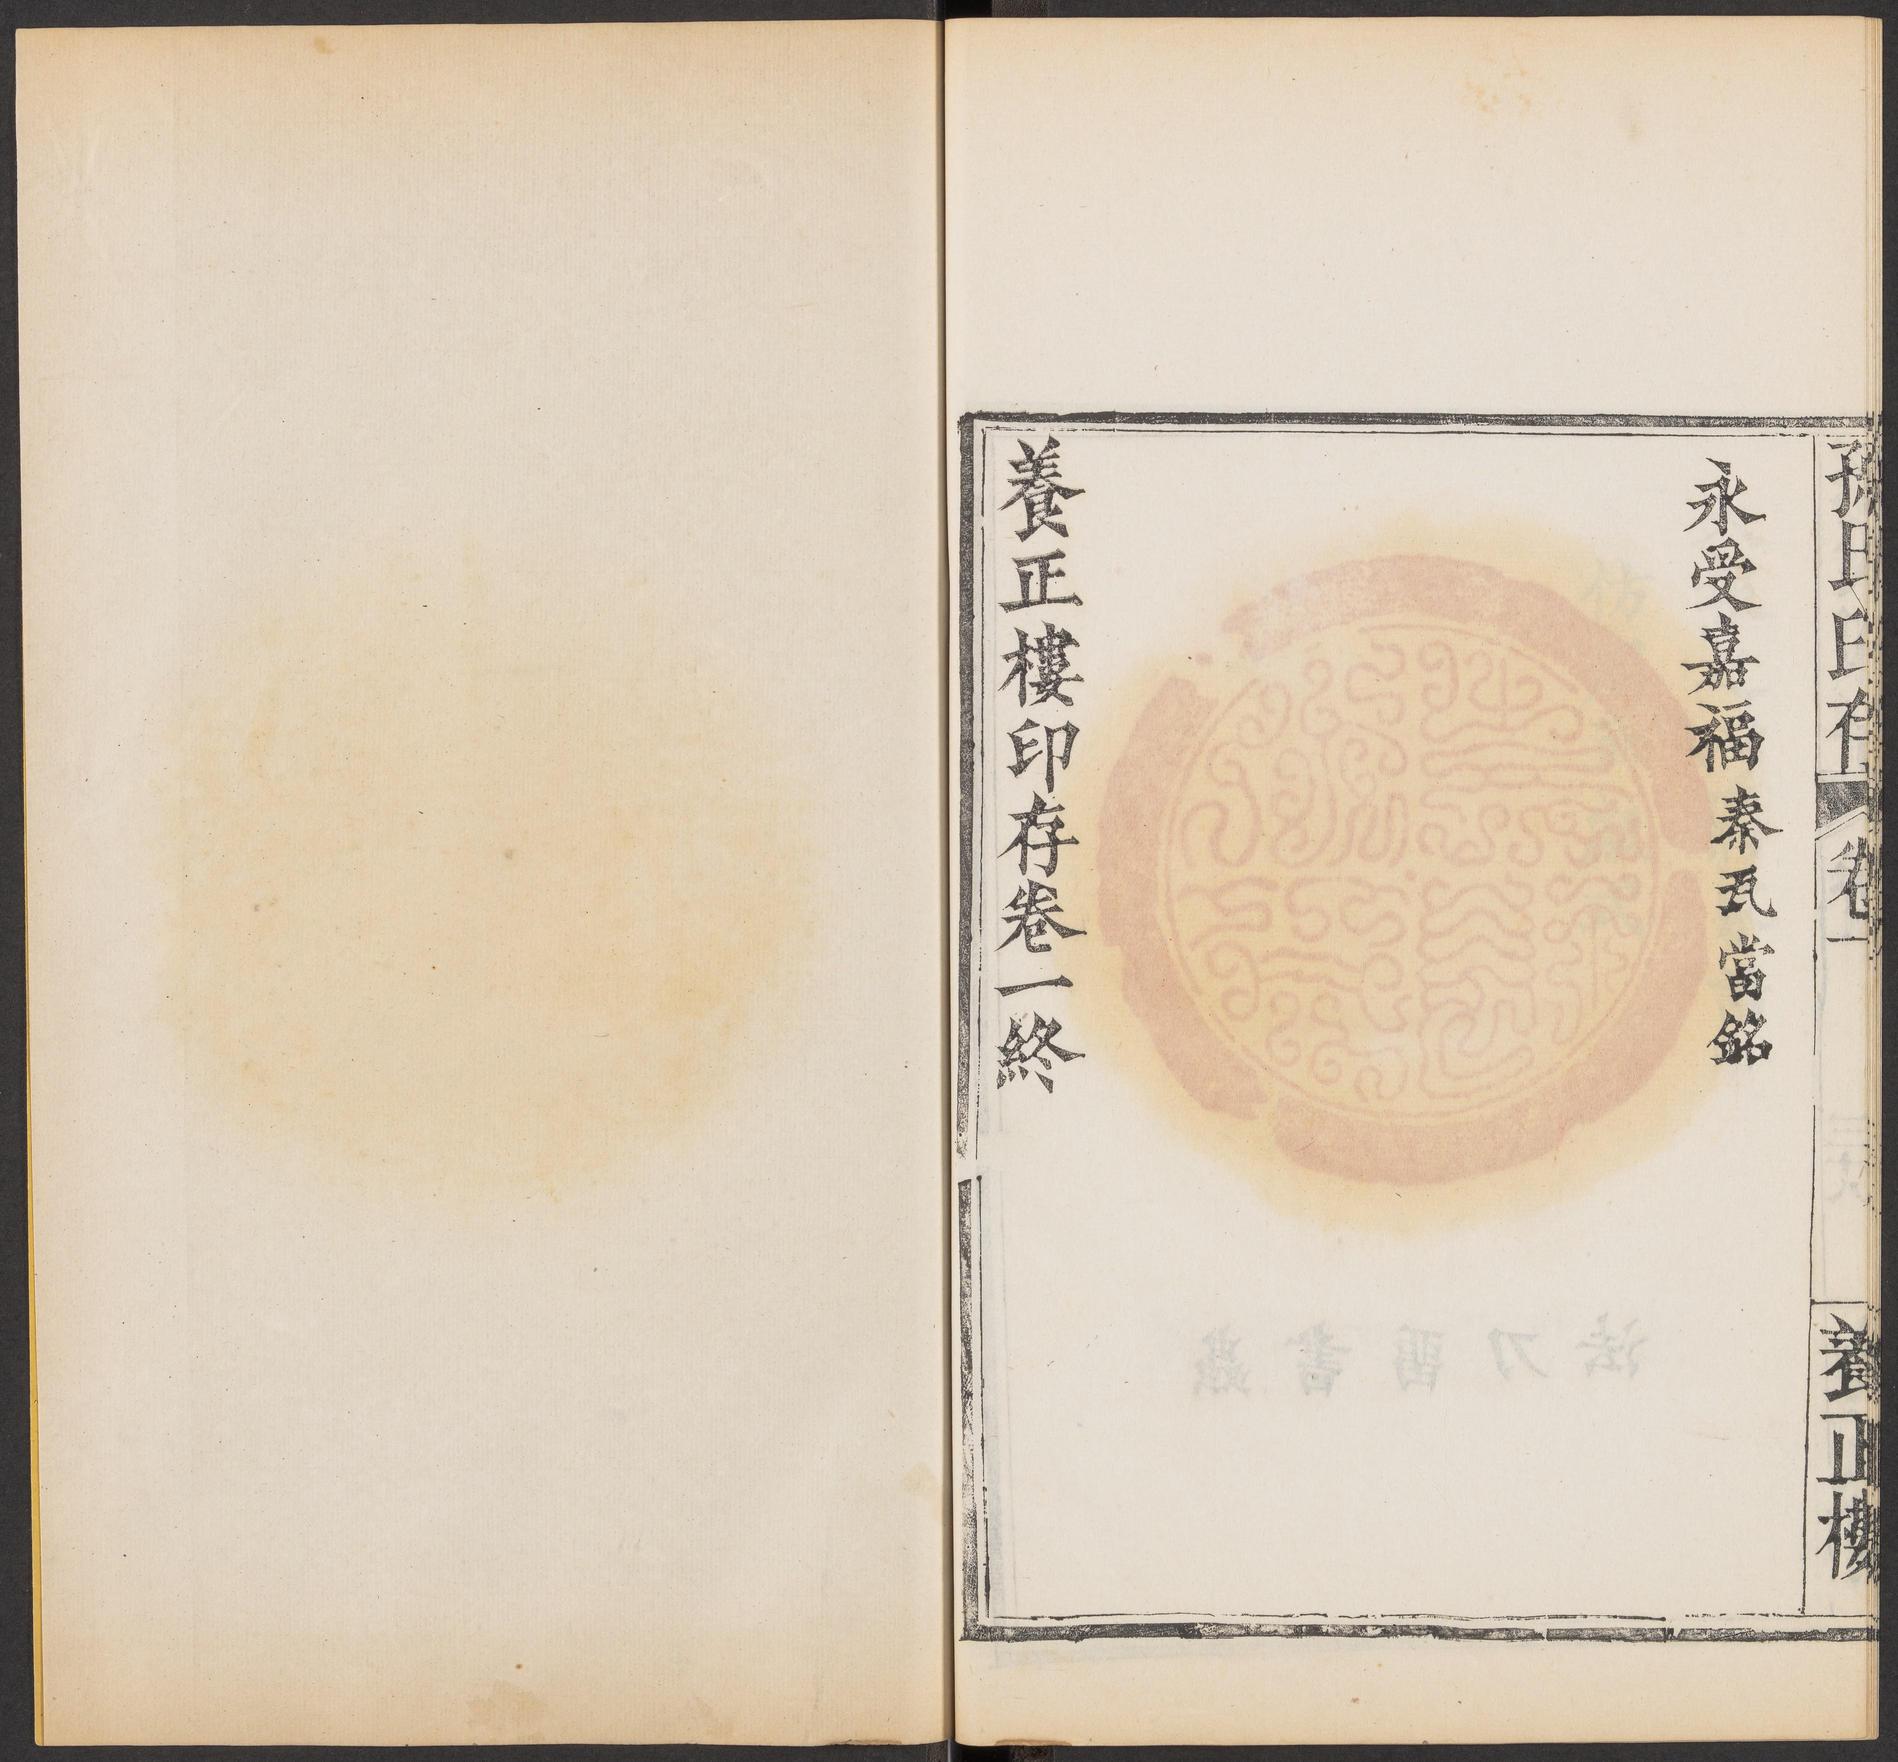 孫氏印存 卷一 養正樓
永受嘉福 秦瓦當銘
養正樓印存卷一終